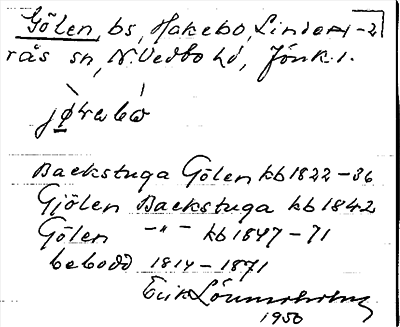 Gölen, bs, Hakebo, Linde- 1-2
rås sn, N. Vedbo hd, Jönk. l.
Backstuga Gölen kb 1822-36
Gjölen Backstuga kb 1842
Gölen -"- kb 1847-71
bebodd 1814-1871
Erik
1950